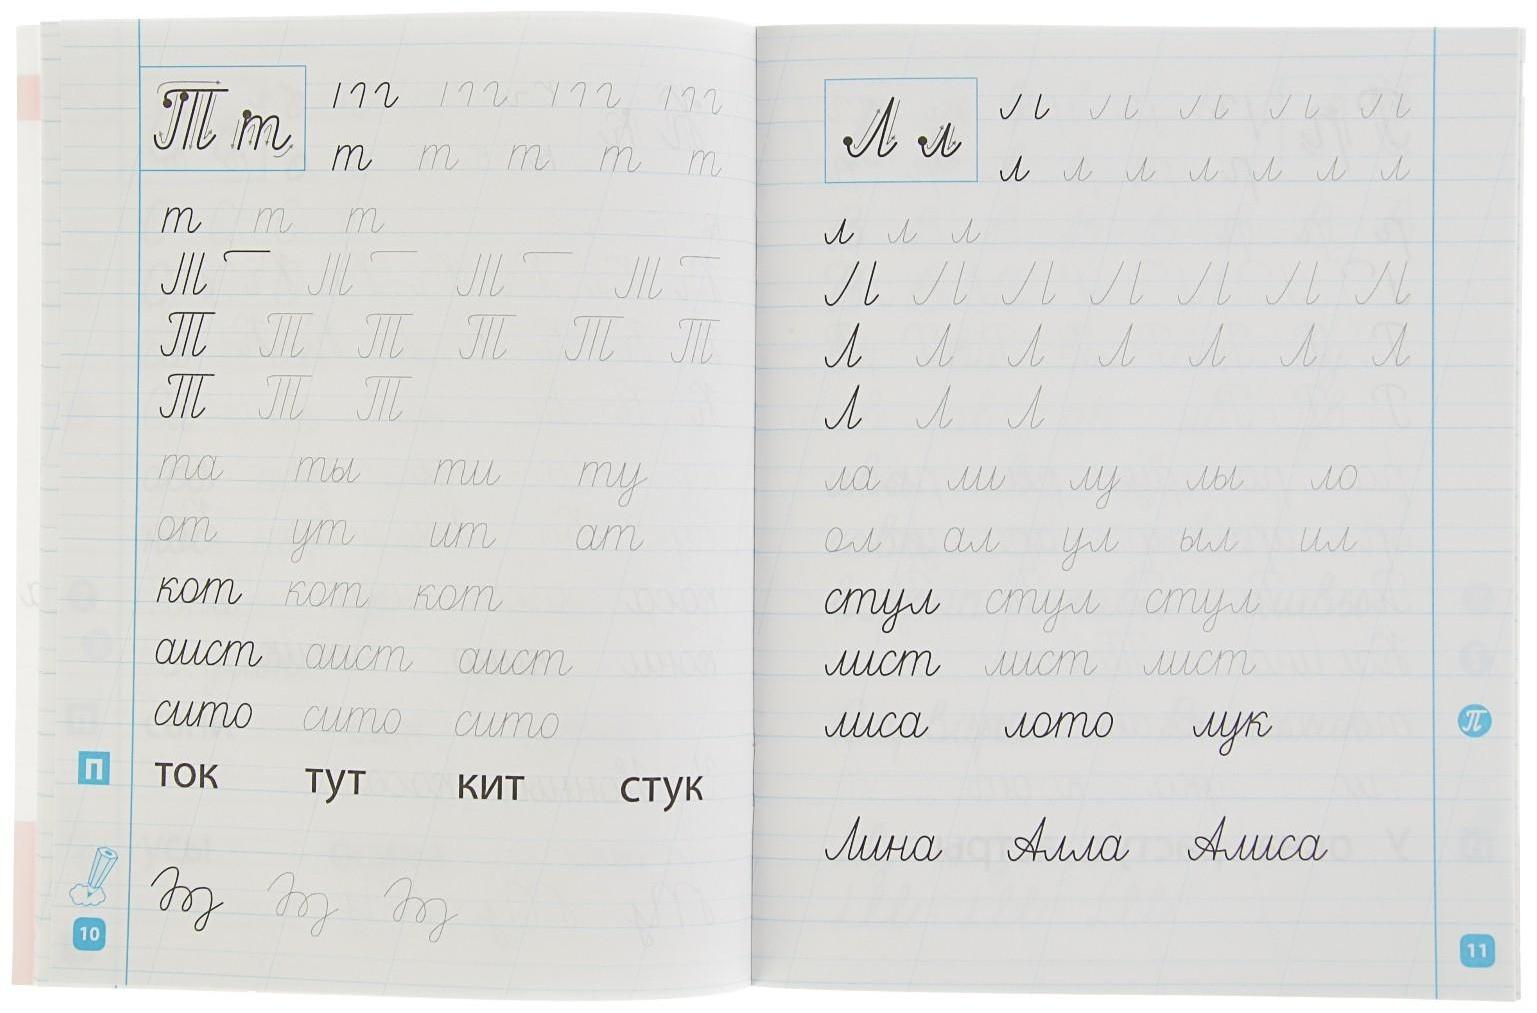 Т т
т т т т т
т т т
Т Т Т Т Т Т
Т Т Т
та ты ти ту
от ут ит ат
кот кот кот
аист аист аист
сито сито сито
П
ток тут кит стук
10
Л л
л л л л л л л
л л л
Л Л Л Л Л Л Л
Л Л Л
ла ли лу лы ло
ол ал ул ыл ил
стул стул стул
лист лист лист
лиса лото лук
П
Лина Алла Алиса
11